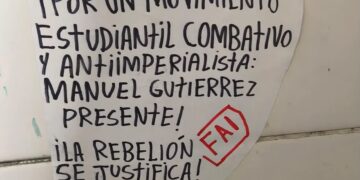 ¡POR UN MOVIMIENTO
ESTUDIANTIL COMBATIVO
Y ANTIIMPERIALISTA:
MANUEL GUTIERREZ
PRESENTE!
¡LA REBELIÓN
SE JUSTIFICA!
FAI